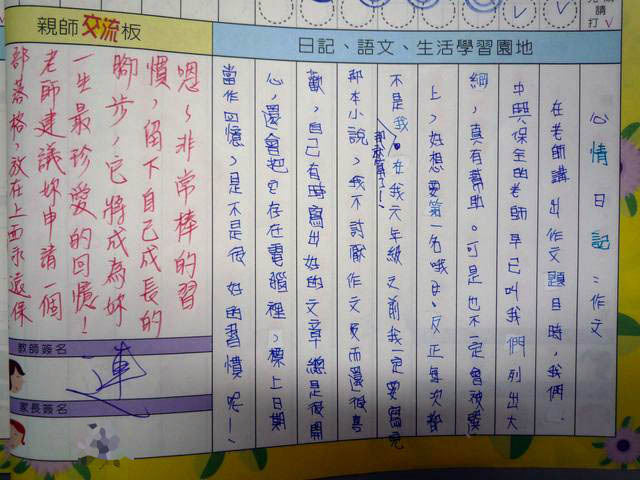 請
打ˇ
親師交流板
日記、語文、生活學習園地
心情日記:作文
在老師講出作文題目時,我們
中興保全的老師早已叫我們列出大
綱,真有幫助。可是也不一定會被
上,好想要第一名哦。反正每次都
不是我。在我六年級之前我一定要寫完
那就算了!
那本小說,我不討厭作文反而還很喜
歡,自己有時寫出好的文章總是很開
心,還會把它存在電腦裡,標上日期
當作回憶,是不是很好的習慣呢!
嗯~非常棒的習
慣,留下自己成長的
腳步,它將成為妳
一生最珍愛的回憶!
老師建議妳申請一個
部落格,放在上面永遠保
教師簽名
連
家長簽名